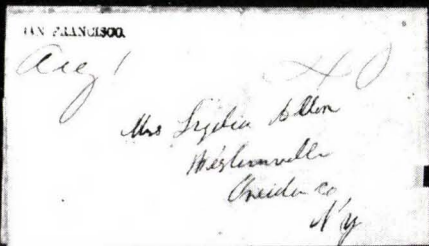 SAN FRANCISCO.
Aug 1
40
Mrs Lydia Allen
Westernville
Oneida Co
N'y